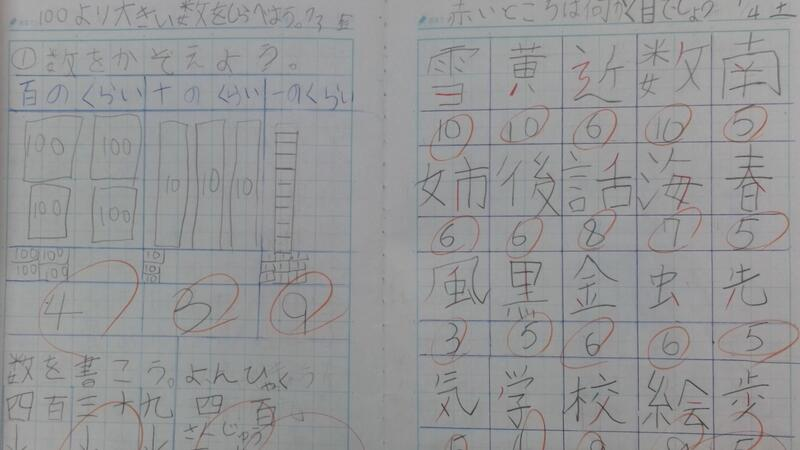 100より大きい数をしらべよう。7/3
①数をかぞえよう。
百のくらい 十のくらい 一のくらい
100 100 10 10 10
100 100
100 100 10
100 100 10
10
4 3 9
数を書こう。よんひゃく
四百三十九 四百
さんじゅう
赤いところは何かく目でしょう 7/4 土
雪 黄 近 数 南
10 10 6 10 5
姉 後 話 海 春
6 6 8 7 5
風 黒 金 虫 先
3 5 6 6 5
気 学 校 絵 歩